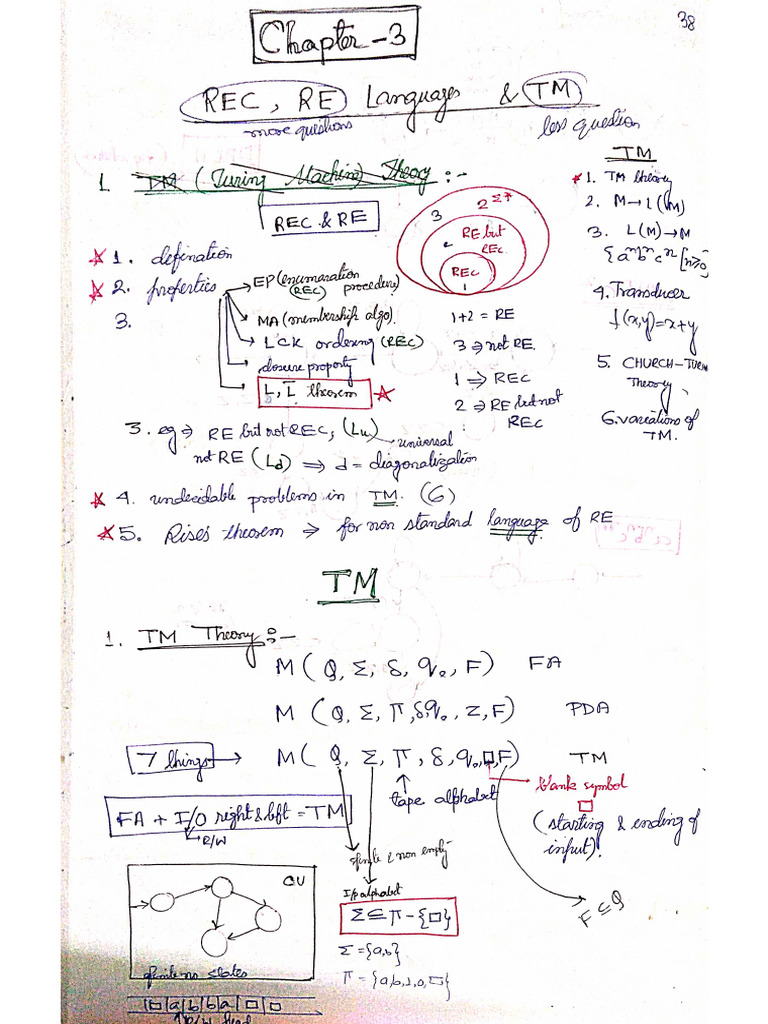 38
Chapter-3
REC, RE Languages & TM
more questions
less question
1. TM (Turing Machine) Theory :-
REC & RE
1. defination
2. properties
EP (enumaration procedure)
(REC)
MA (membership algo).
3.
LCK ordering (REC)
closure property
L, L̅ theorem
3
2^Σ*
2
RE but REC
REC
1
1+2 = RE
3 ⇒ not RE.
1 ⇒ REC
2 ⇒ RE but not REC
TM
1. TM theory
2. M→L(M)
3. L(M)→M
{aⁿbⁿcⁿ [n≥0]
4. Transducer
f(x,y)=x+y
5. CHURCH-TURIN
Theory
6. variations of
TM.
3. eg ⇒ RE but not REC, (Lu)
universal
not RE (Ld) ⇒ d = diagonalization
4. undecidable problems in TM. (6)
5. Rise's theorem ⇒ for non standard language of RE
TM
1. TM Theory :-
M(Q, Σ, δ, q₀, F) FA
M (Q, Σ, Π, δ, q₀, Z, F) PDA
7 things → M(Q, Σ, Π, δ, q₀, □, F) TM
tape alphabet
blank symbol
□
(starting & ending of
input).
FA + I/O right & left = TM
R/W
finite & non empty
F ⊆ Q
I/p alphabet
Σ ⊆ Π - {□}
Σ = {a,b}
Π = {a,b,1,0,□}
CU
finite no states
|□|a|b|b|a|□|□
R/W head